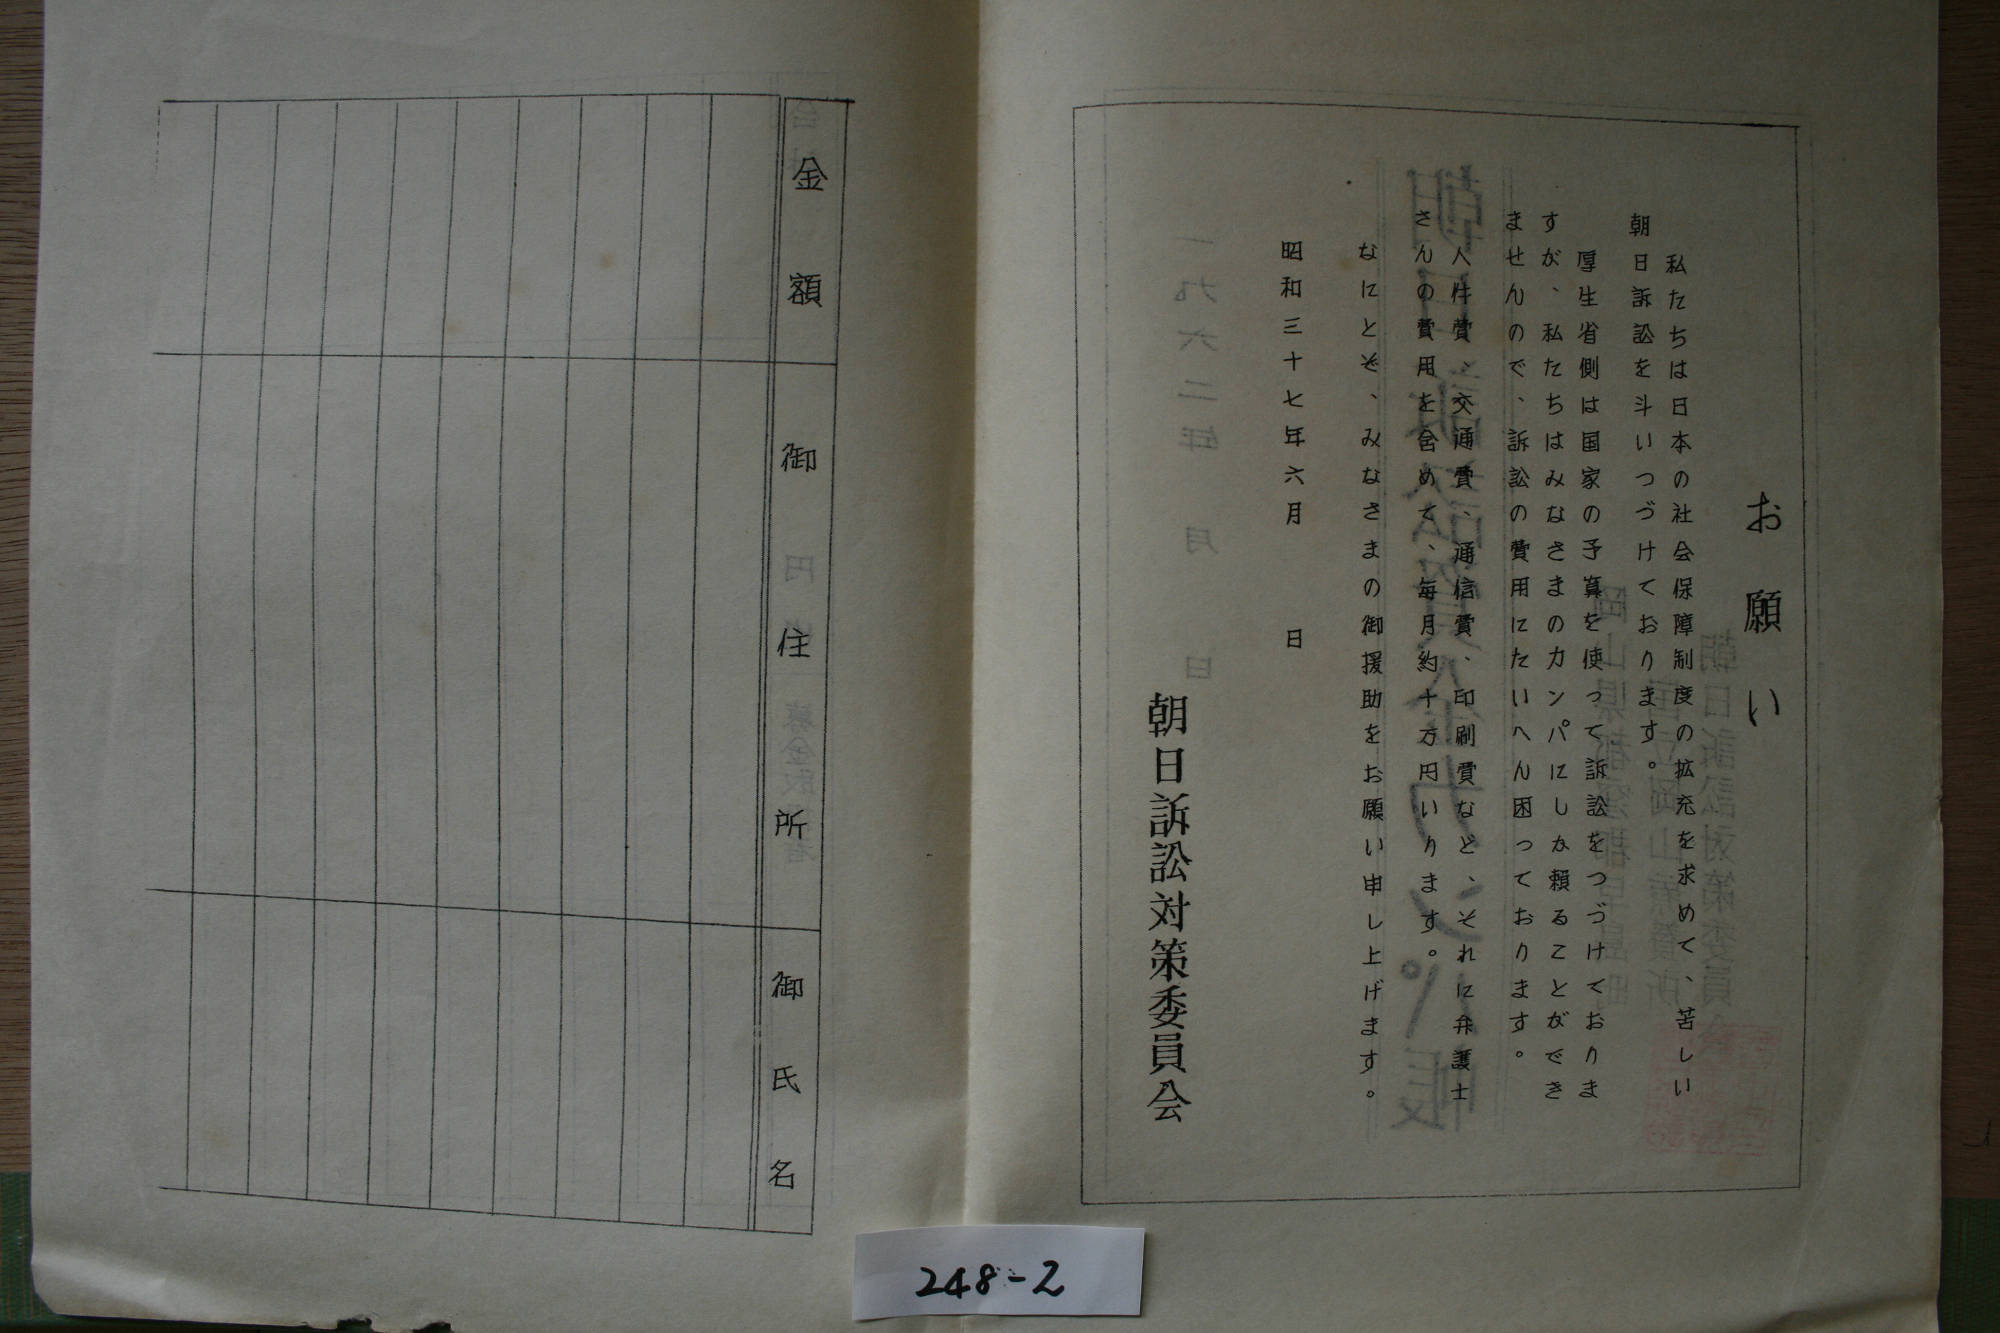 お願い
私たちは日本の社会保障制度の拡充を求めて、苦しい
朝日訴訟を斗いつづけております。
厚生省側は国家の予算を使って訴訟をつづけておりま
すが、私たちはみなさまのカンパにしか頼ることができ
ませんので、訴訟の費用にたいへん困っております。
人件費、交通費、通信費、印刷費など、それに弁護士
さんの費用を含めて、毎月約十万円いります。
なにとぞ、みなさまの御援助をお願い申し上げます。
昭和三十七年六月　　日
朝日訴訟対策委員会
金額
御住所
御氏名
248-2